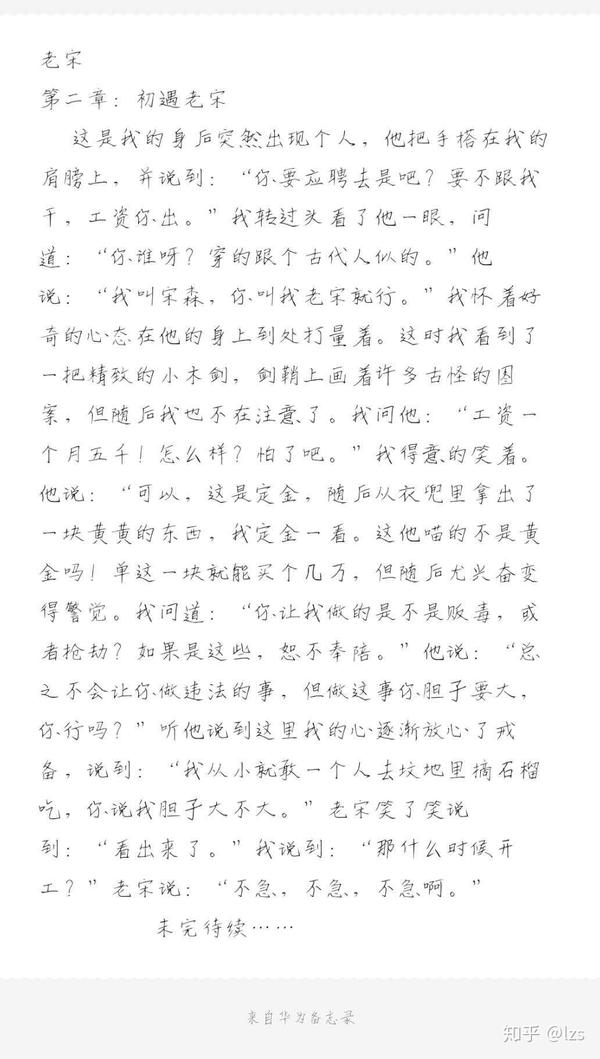 老宋
第二章：初遇老宋
这是我的身后突然出现个人，他把手搭在我的
肩膀上，并说到：“你要应聘去是吧？要不跟我
干，工资你出。”我转过头看了他一眼，问
道：“你谁呀？穿的跟个古代人似的。”他
说：“我叫宋森，你叫我老宋就行。”我怀着好
奇的心态在他的身上到处打量着。这时我看到了
一把精致的小木剑，剑鞘上画着许多古怪的图
案，但随后我也不在注意了。我问他：“工资一
个月五千！怎么样？怕了吧。”我得意的笑着。
他说：“可以，这是定金，随后从衣兜里拿出了
一块黄黄的东西，我定金一看。这他喵的不是黄
金吗！单这一块就能买个几万，但随后尤兴奋变
得警觉。我问道：“你让我做的是不是贩毒，或
者抢劫？如果是这些，恕不奉陪。”他说：“总
之不会让你做违法的事，但做这事你胆子要大，
你行吗？”听他说到这里我的心逐渐放心了戒
备，说到：“我从小就敢一个人去坟地里摘石榴
吃，你说我胆子大不大。”老宋笑了笑说
到：“看出来了。”我说到：“那什么时候开
工？”老宋说：“不急，不急，不急啊。”
未完待续……
来自华为备忘录
知乎 @lzs